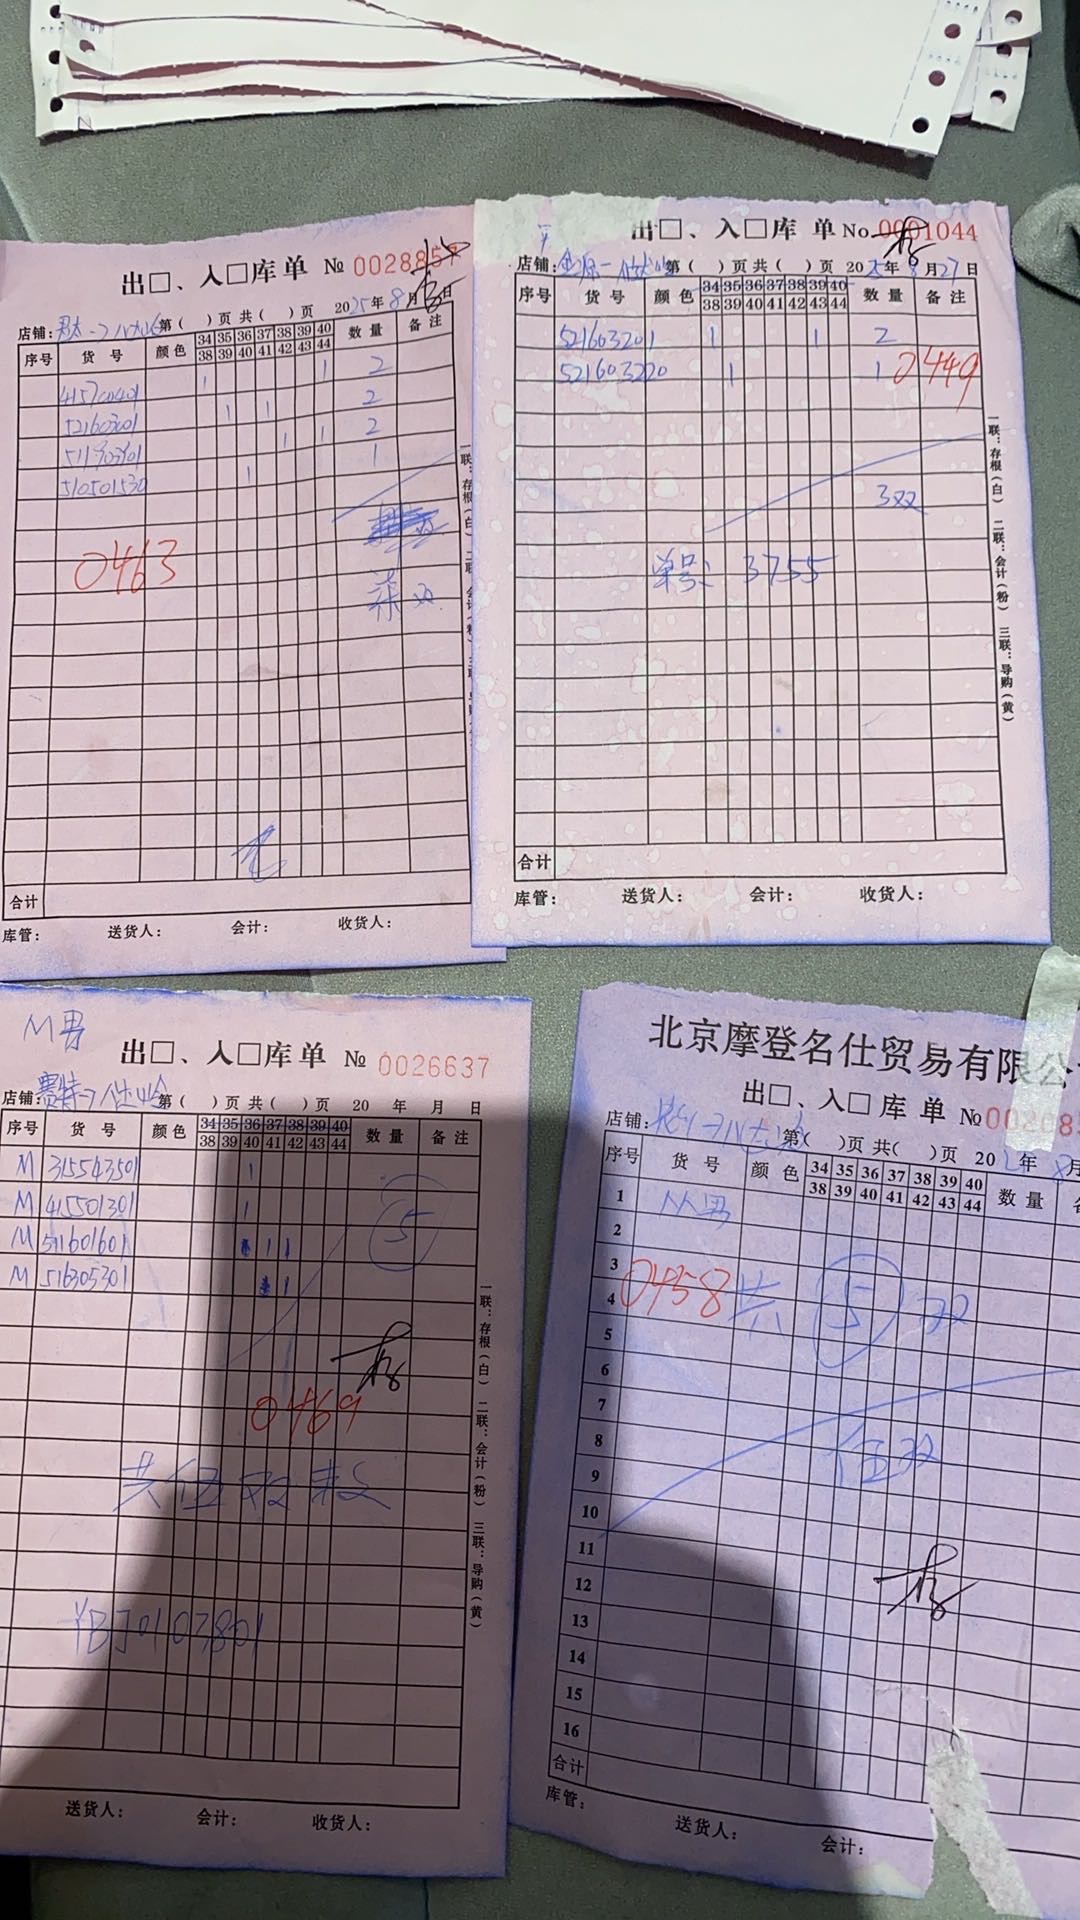 出□、入□库单 № 0028857
店铺: 第( )页共( )页 2025年8月 日
序号 货号 颜色 34 35 36 37 38 39 40 数量 备注
38 39 40 41 42 43 44
415700401 1 1 2
521603201 1 1 2
1 1 2
510501530 1 1
0463
柒双
合计
库管: 送货人: 会计: 收货人:
出□、入□库单 No. 0001044
店铺: 第( )页共( )页 2025年8月27日
序号 货号 颜色 34 35 36 37 38 39 40 数量 备注
38 39 40 41 42 43 44
521603201 1 1 2
521603220 1 1 0449
3双
单号: 3755
合计
库管: 送货人: 会计: 收货人:
一联:存根(白) 二联:会计(粉) 三联:导购(黄)
M男
出□、入□库单 № 0026637
店铺:赛特→ 第( )页共( )页 20 年 月 日
序号 货号 颜色 34 35 36 37 38 39 40 数量 备注
38 39 40 41 42 43 44
M 315543501 1
M 415501301 1 5
M 511601601 1 1
M 516305301 1
0469
共伍双
YBJ0103801
送货人: 会计: 收货人:
一联:存根(白) 二联:会计(粉) 三联:导购(黄)
北京摩登名仕贸易有限公
出□、入□库单 №
店铺: 第( )页共( )页 20 年 8月
序号 货号 颜色 34 35 36 37 38 39 40 数量
38 39 40 41 42 43 44
1 M男
2
3
4 0458 共 5 双
5
6
7
8 伍双
9
10
11
12
13
14
15
16
合计
库管: 送货人: 会计: